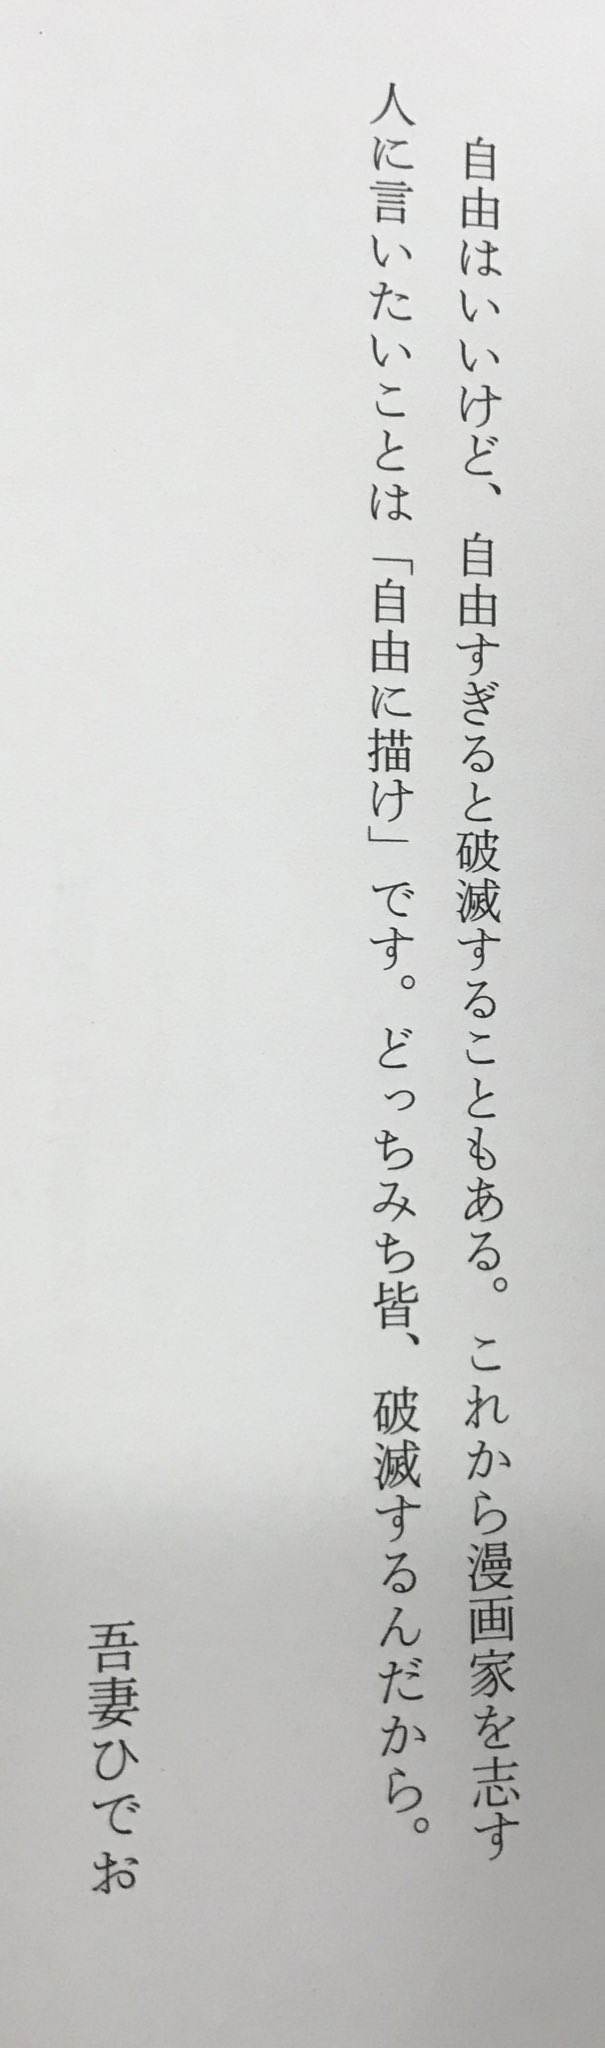 自由はいいけど、自由すぎると破滅することもある。これから漫画家を志す
人に言いたいことは「自由に描け」です。どっちみち皆、破滅するんだから。
吾妻ひでお